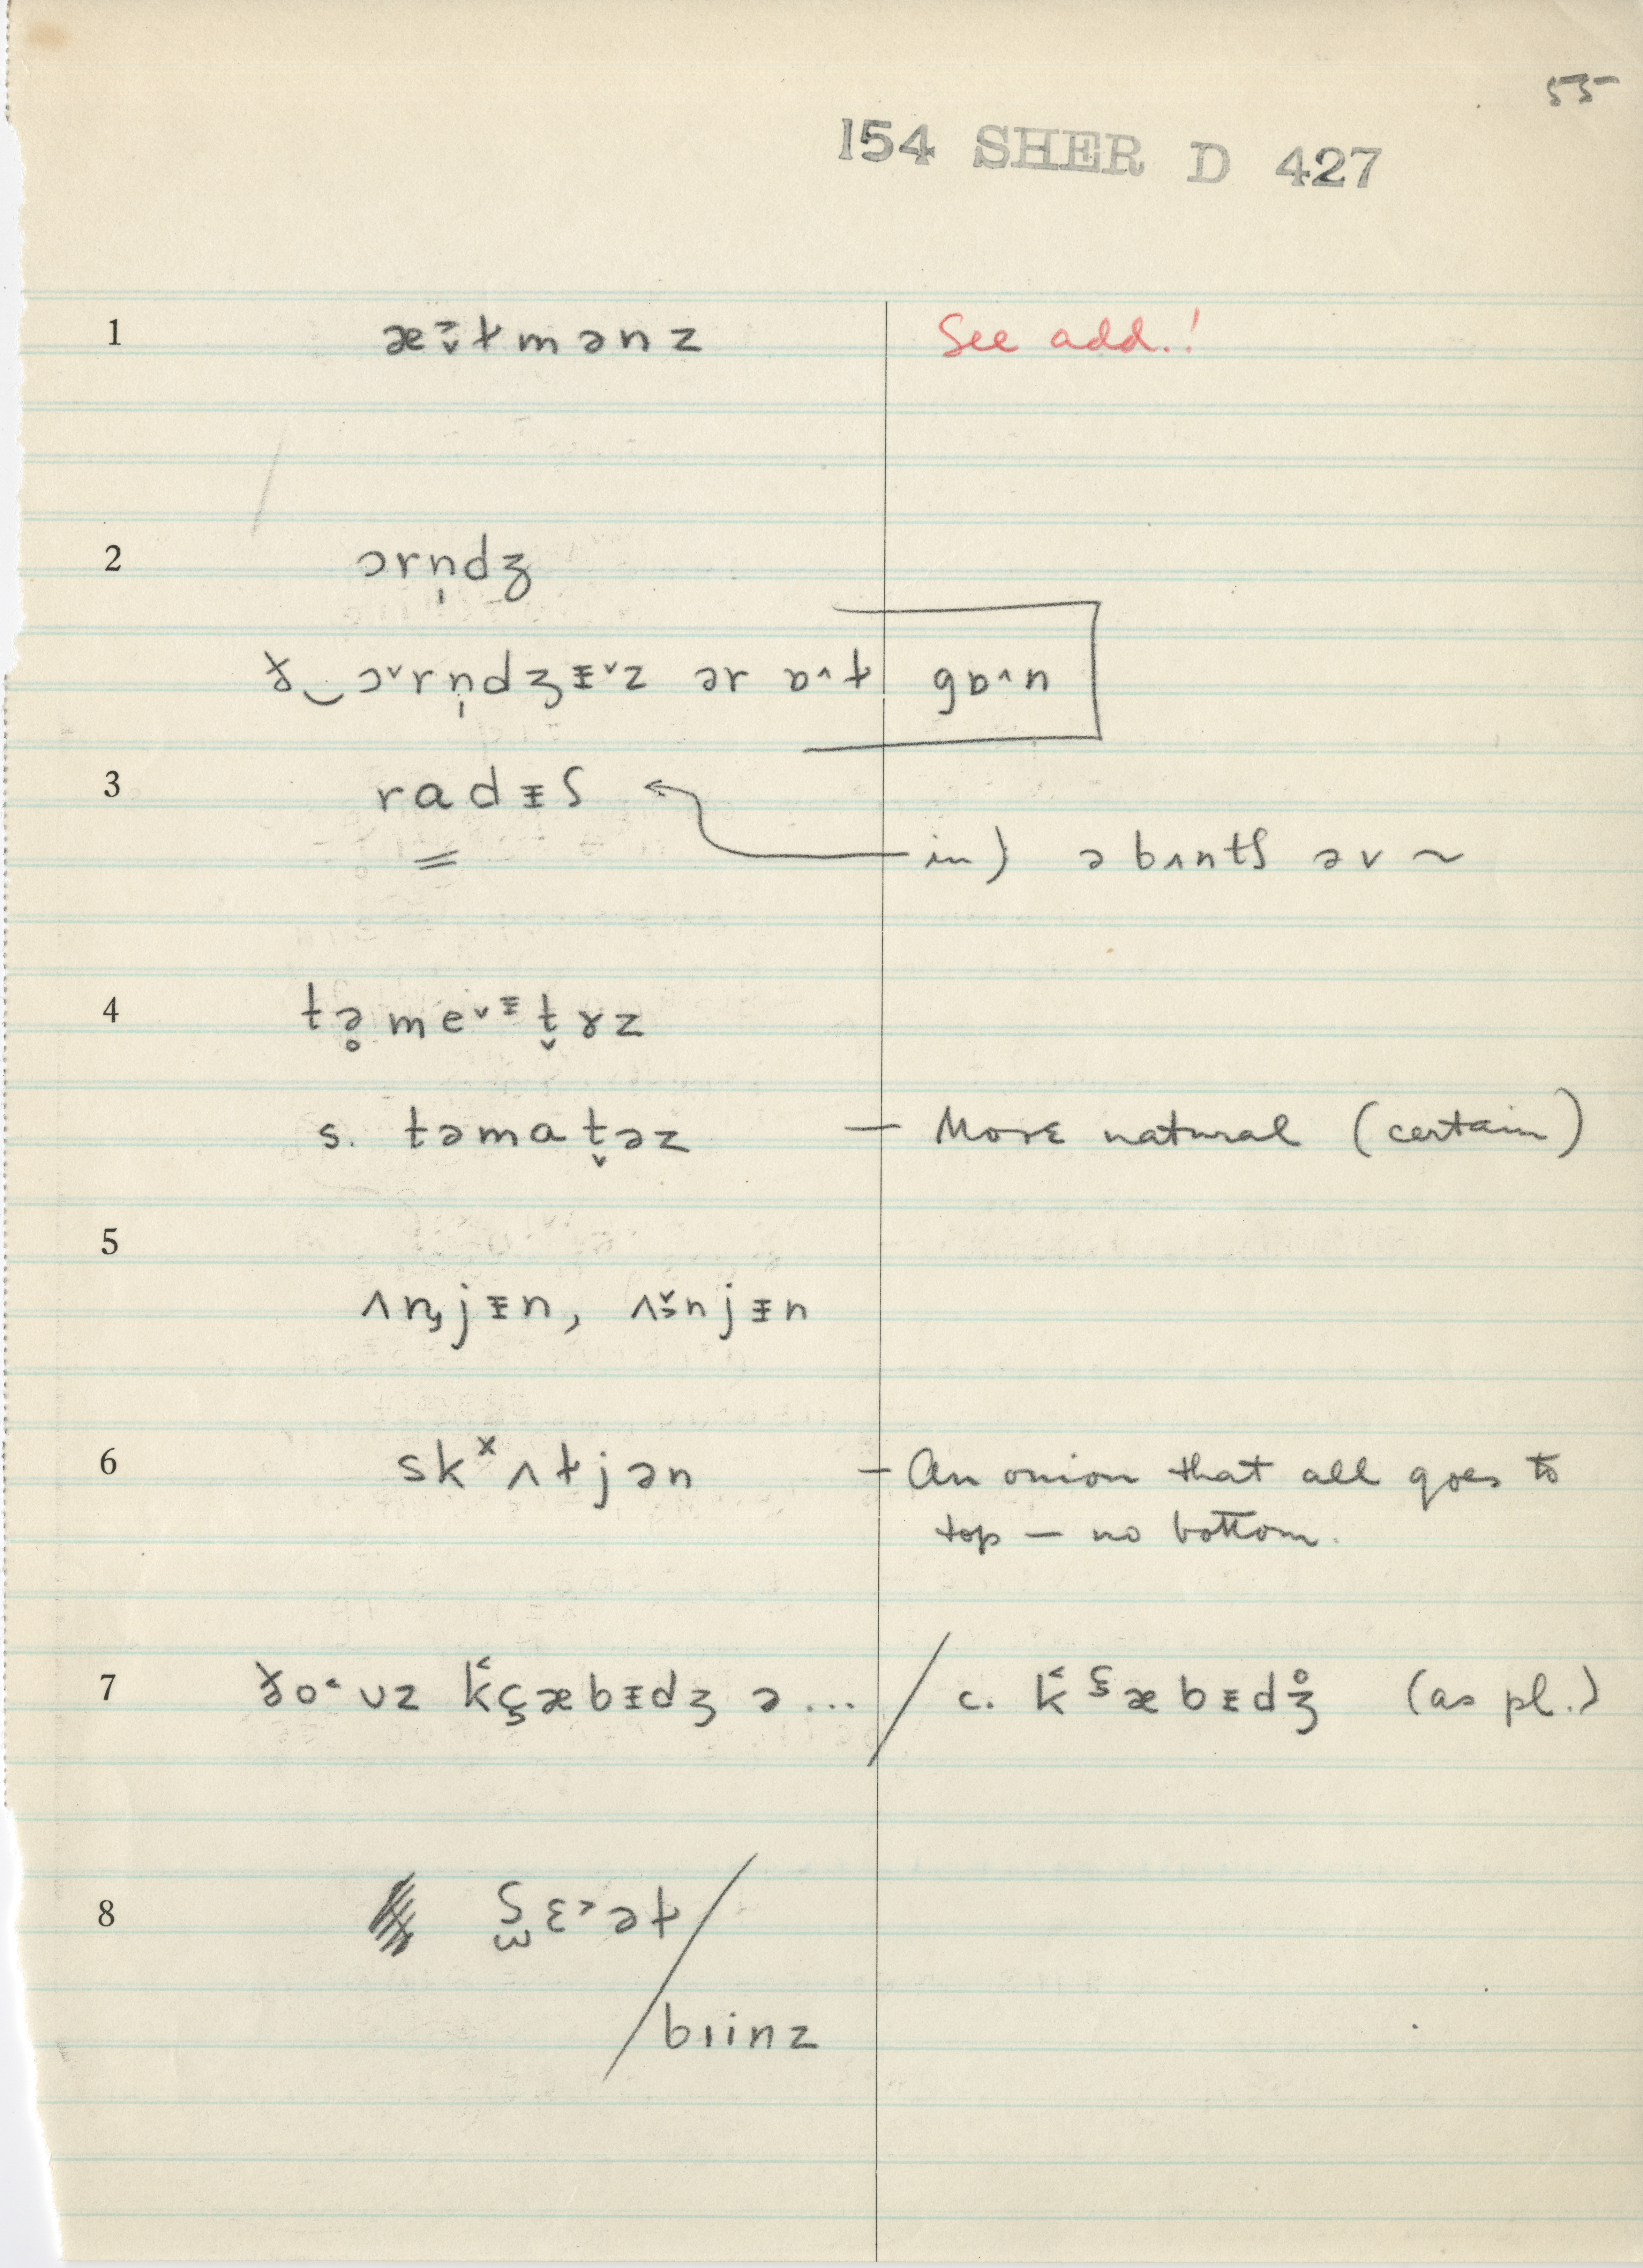 55
154 SHER D 427
1 æɜ̬ɫmənz See add.!
2 ɔrn̩dʒ
ɣ‿ɔ˅rn̩dʒᵻ˅z ər ɒ˄ɫ gɒ˄n
3 radᵻʃ
in) ə bʌntʃ əv ~
4 tə̥me˅ᵻt̬ɤz
s. təmat̬əz — More natural (certain)
5
ʌnjᵻn, ʌnjᵻn
6 skˣʌɫjən — An onion that all goes to
top — no bottom.
7 ðo˂ʊz kæbᵻdʒ ə... / c. kæbᵻdʒ̊ (as pl.)
8 ʃɛ˃əɫ /
bɪinz